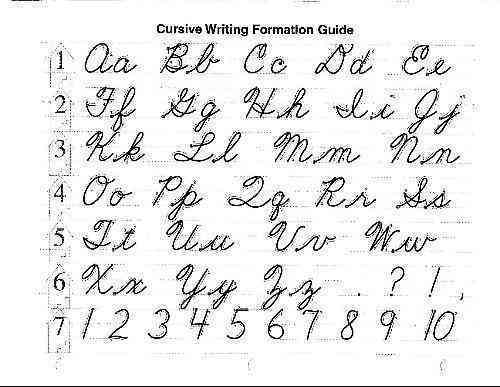 Cursive Writing Formation Guide
1 Aa Bb Cc Dd Ee
2 Ff Gg Hh Ii Jj
3 Kk Ll Mm Nn
4 Oo Pp Qq Rr Ss
5 Tt Uu Vv Ww
6 Xx Yy Zz . ? ! ,
7 1 2 3 4 5 6 7 8 9 10